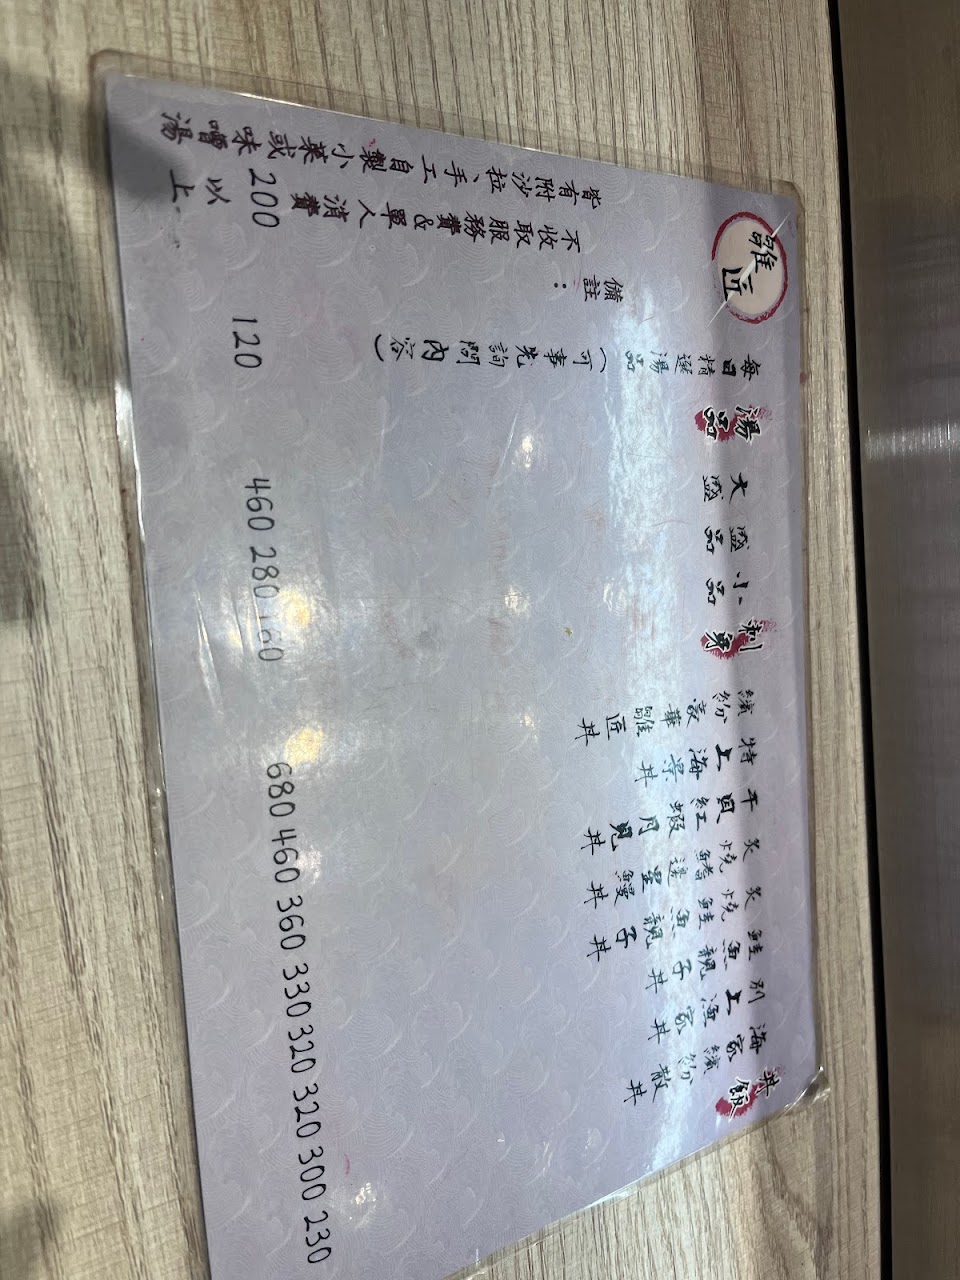 丼飯
海家繽紛散丼 230
別上漁家丼 300
鮭魚親子丼 320
炙燒鮭魚親子丼 320
炙燒鰭邊星鰻丼 330
干貝紅蝦月見丼 360
特上海景丼 460
繽紛豪華雕匠丼 680
刺身
小品 160
盛品 280
大盛 460
湯品
每日精選湯品(可事先詢問內容) 120
雕匠
備註:
不收取服務費&單人消費200以上
皆有附沙拉、手工自製小菜或味噌湯